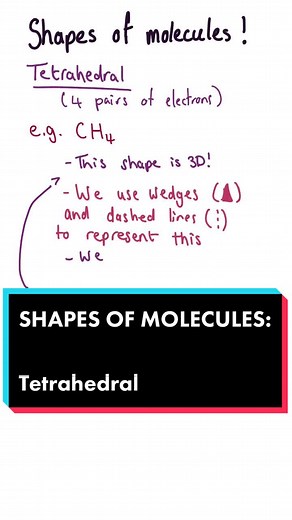 Shapes of molecules!
Tetrahedral
(4 pairs of electrons)
e.g. CH4
- This shape is 3D!
- We use wedges ( )
and dashed lines ( )
to represent this
- We
SHAPES OF MOLECULES:
Tetrahedral